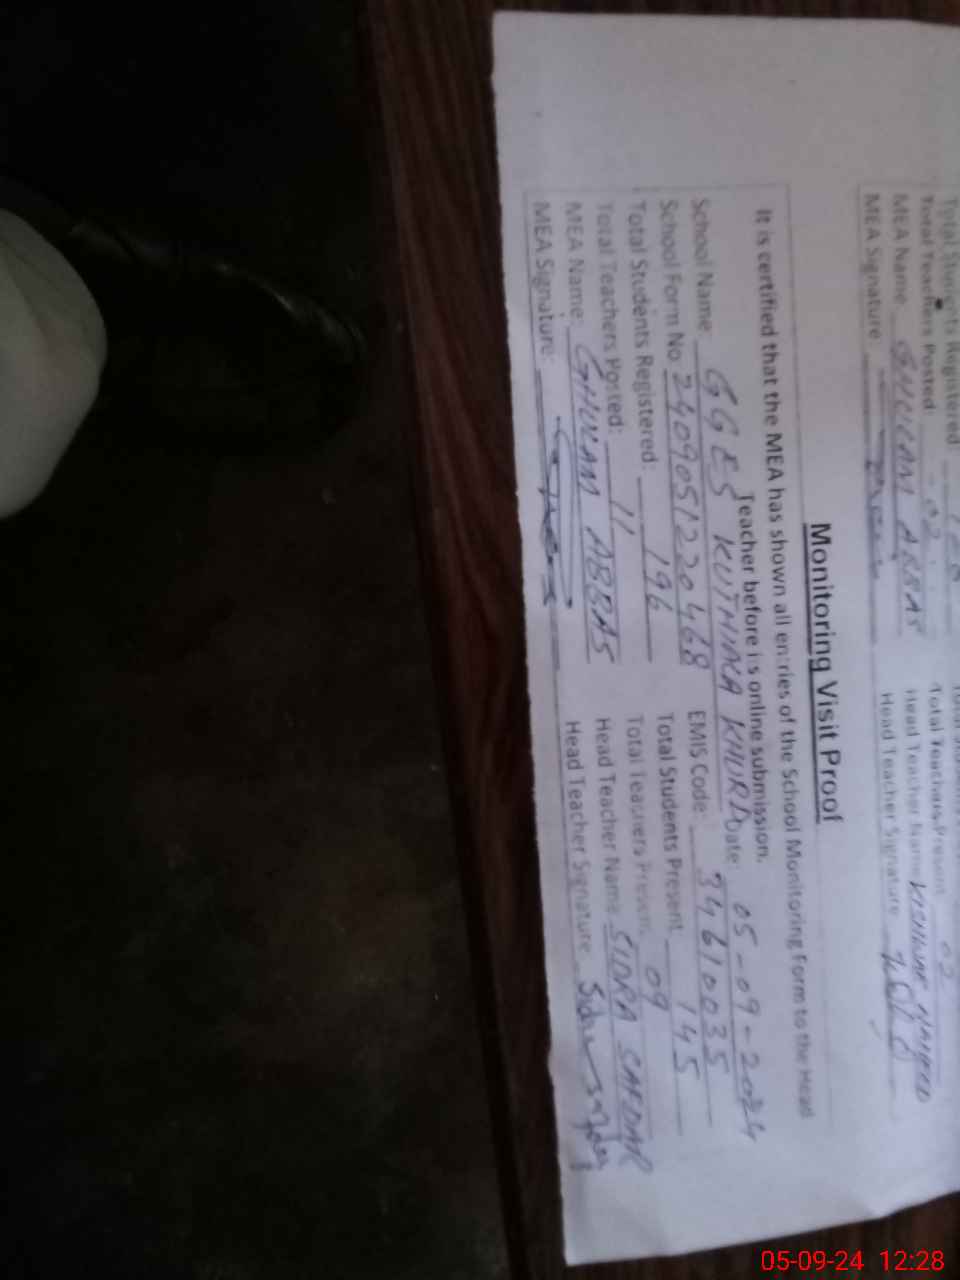 Total Students Registered
Total Teachers Posted: 02 Total Teachers Present 02
MEA Name GHULAM ABBAS Head Teacher Name
MEA Signature Head Teacher Signature
Monitoring Visit Proof
It is certified that the MEA has shown all entries of the School Monitoring Form to the Head
Teacher before its online submission.
School Name: GGES KUTHIALA KHURD Date: 05-09-2024
School Form No. 2409051220468 EMIS Code: 34610035
Total Students Registered: 196 Total Students Present 145
Total Teachers Posted: 11 Total Teachers Present 09
MEA Name: GHULAM ABBAS Head Teacher Name SIDRA SAFDAR
MEA Signature: Head Teacher Signature
05-09-24 12:28